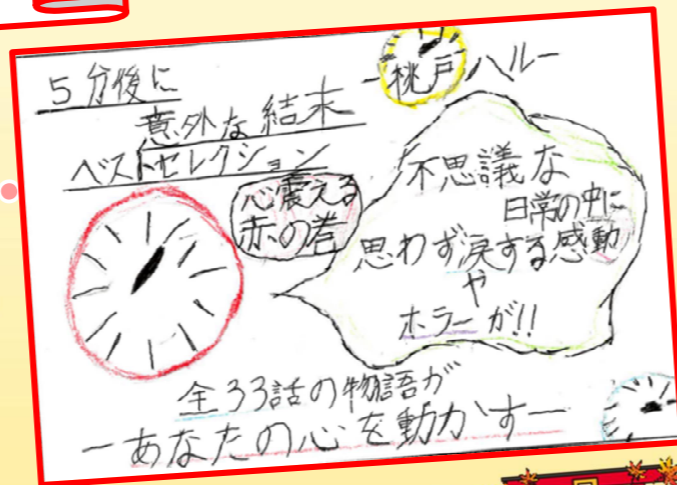 5分後に
意外な結末
ベストセレクション
-桃戸ハル-
心震える
赤の巻
不思議な
日常の中に
思わず涙する感動
や
ホラーが!!
全33話の物語が
ーあなたの心を動かすー